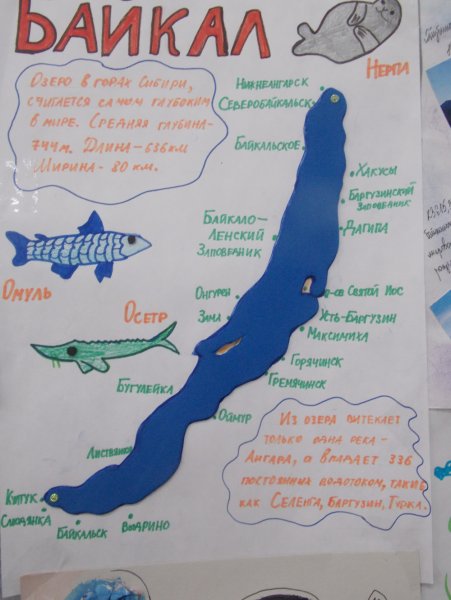 БАЙКАЛ
НЕРПА
ОЗЕРО В ГОРАХ СИБИРИ,
СЧИТАЕТСЯ САМЫМ ГЛУБОКИМ
В МИРЕ. СРЕДНЯЯ ГЛУБИНА-
744М. ДЛИНА-636КМ
ШИРИНА- 80 КМ.
НИЖНЕАНГАРСК
СЕВЕРОБАЙКАЛЬСК
БАЙКАЛЬСКОЕ
ХАКУСЫ
БАРГУЗИНСКИЙ
ЗАПОВЕДНИК
ДАГИПА
БАЙКАЛО-
ЛЕНСКИЙ
ЗАПОВЕДНИК
ОМУЛЬ
ОСЕТР
ОНГУРЕН
ЗАМА
СВЯТОЙ НОС
УСТЬ-БАРГУЗИН
МАКСИМИХА
ГОРЯЧИНСК
ГРЕМЯЧИНСК
БУГУЛЕЙКА
ОЙМУР
ЛИСТВЯНКА
КУЛТУК
СЛЮДЯНКА
БАЙКАЛЬСК
ВЫДРИНО
ИЗ ОЗЕРА ВЫТЕКАЕТ
ТОЛЬКО ОДНА РЕКА-
АНГАРА, А ВПАДАЕТ 336
ПОСТОЯННЫХ ВОДОТОКОВ, ТАКИЕ
КАК СЕЛЕНГА, БАРГУЗИН, ТУРКА.